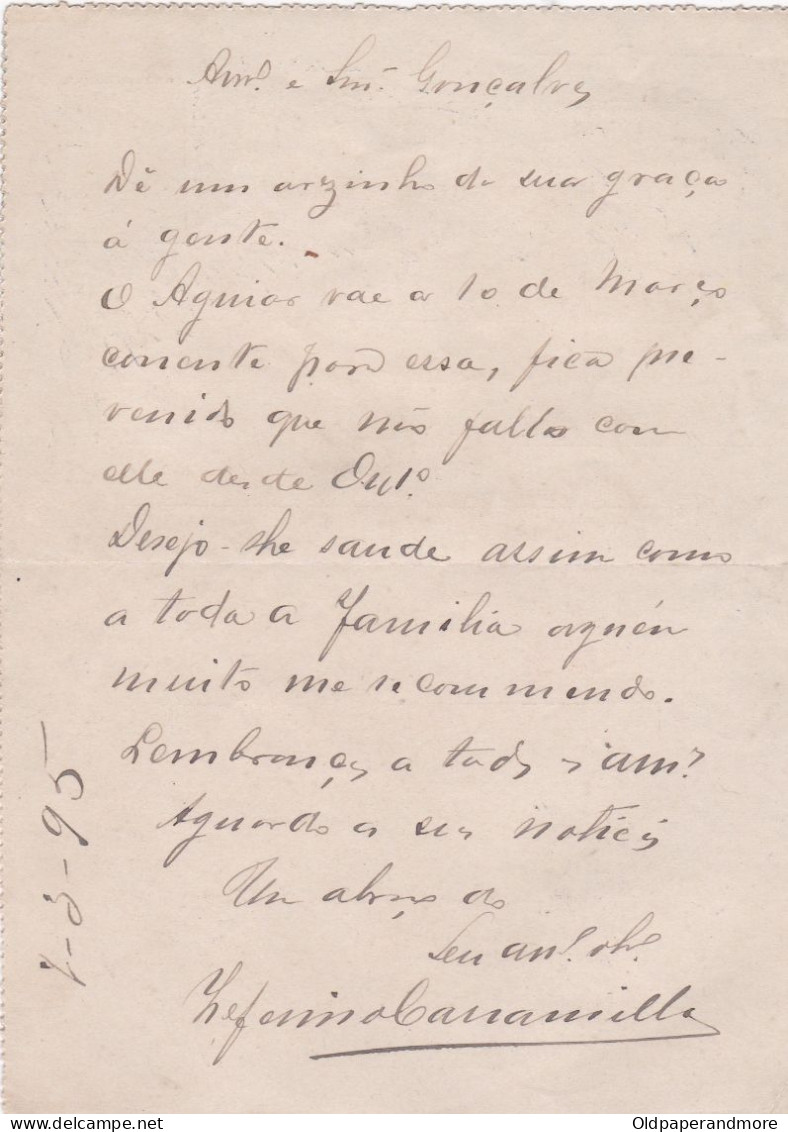 Amº. e Snr. Gonçalves
Dê um arzinho da sua graça
á gente.
O Aguiar vae a 10 de Março
corrente para essa, fica pre-
venido que nós falta com
elle desde Outº.
Desejo-lhe saude assim como
a toda a Familia a quem
muito me recommendo.
Lembranças a todos os amºs
Aguardo as suas noticias
Um abraço do
Seu amº. obº.
Zeferino Carramilla
1-3-95
Oldpaperandmore